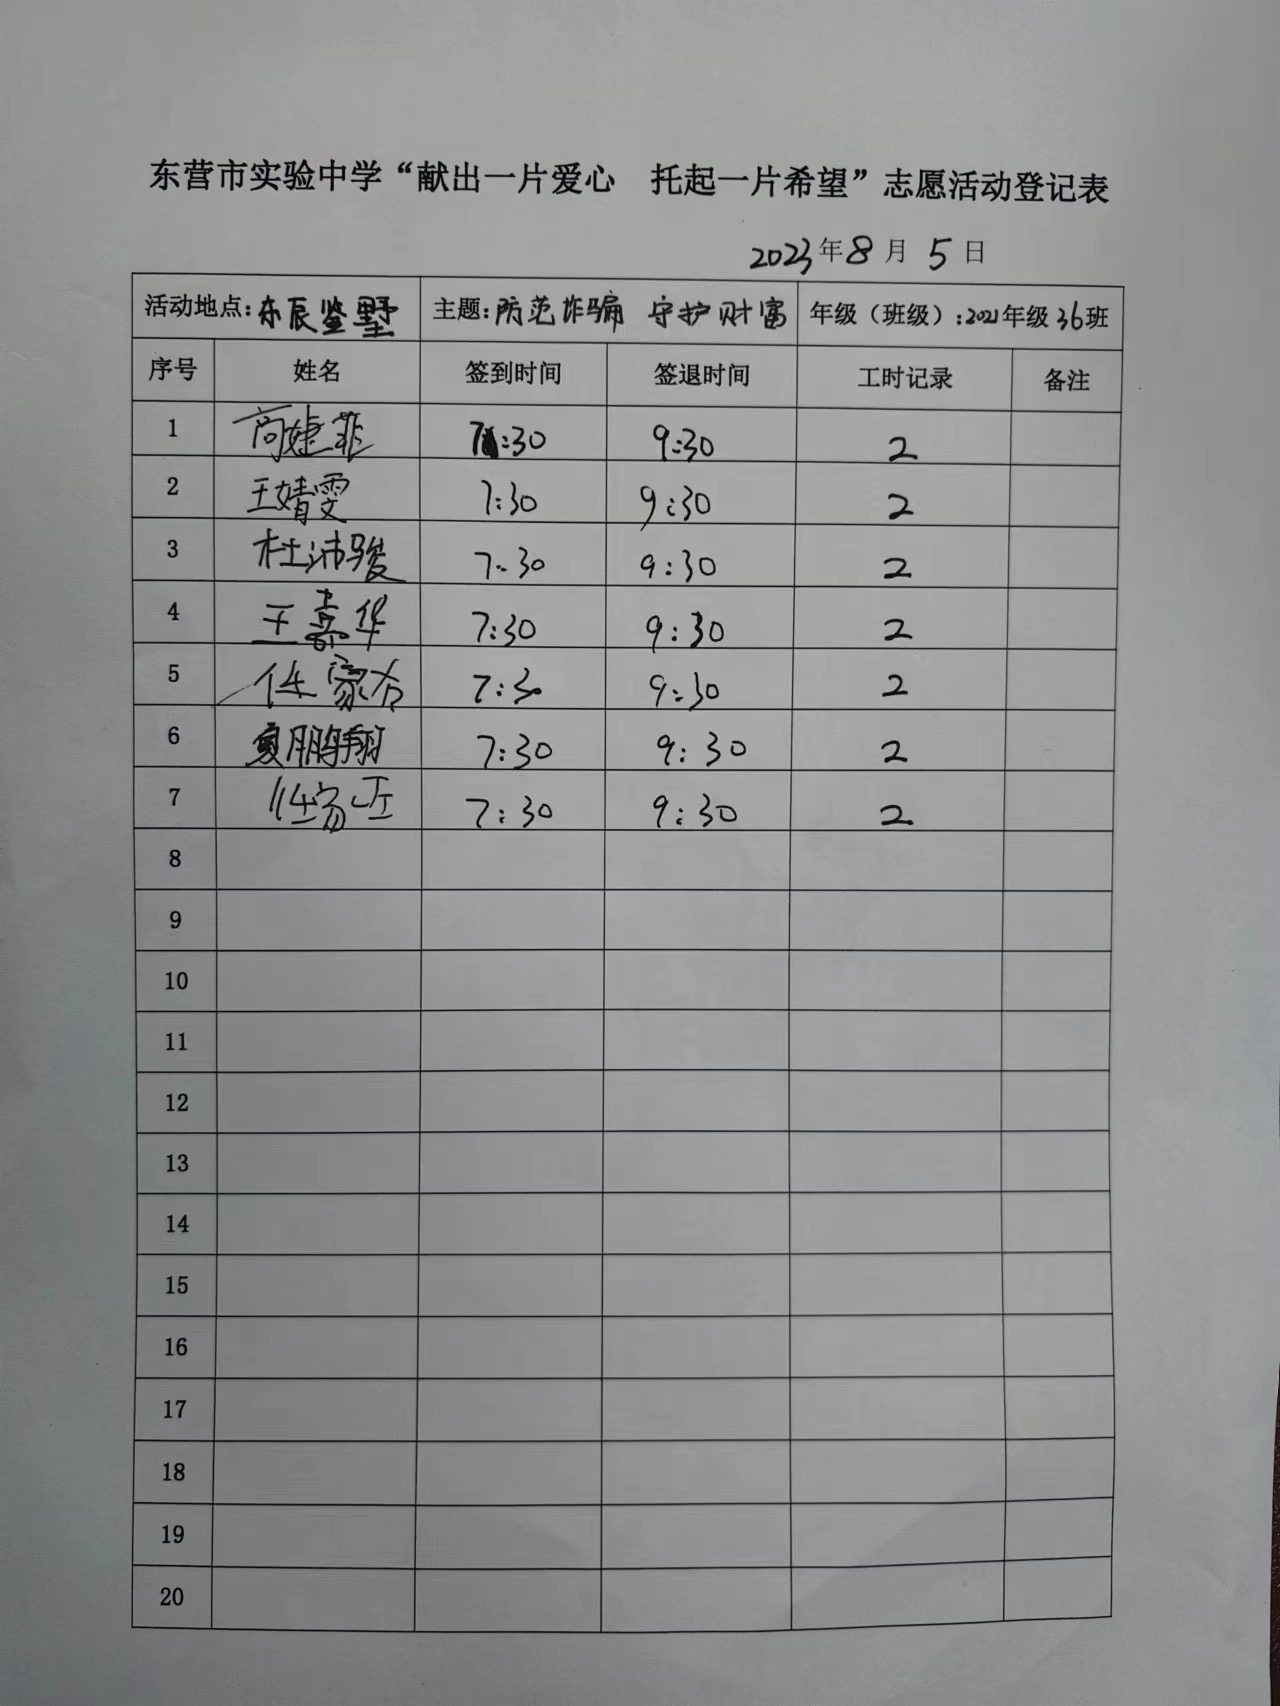 东营市实验中学“献出一片爱心 托起一片希望”志愿活动登记表
2023年8月5日
活动地点:东辰鉴墅 主题:防范诈骗 守护财富 年级（班级）:2021年级36班
序号 姓名 签到时间 签退时间 工时记录 备注
1 高婕菲 7:30 9:30 2
2 王婧雯 7:30 9:30 2
3 杜沛骏 7:30 9:30 2
4 王嘉华 7:30 9:30 2
5 任家 7:30 9:30 2
6 夏鹏翔 7:30 9:30 2
7 任 7:30 9:30 2
8
9
10
11
12
13
14
15
16
17
18
19
20